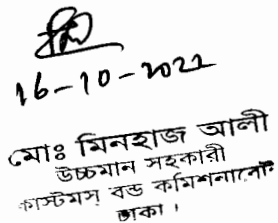 16-10-2022
মোঃ মিনহাজ আলী
উচ্চমান সহকারী
কাস্টমস্ বন্ড কমিশনারেট
ঢাকা।